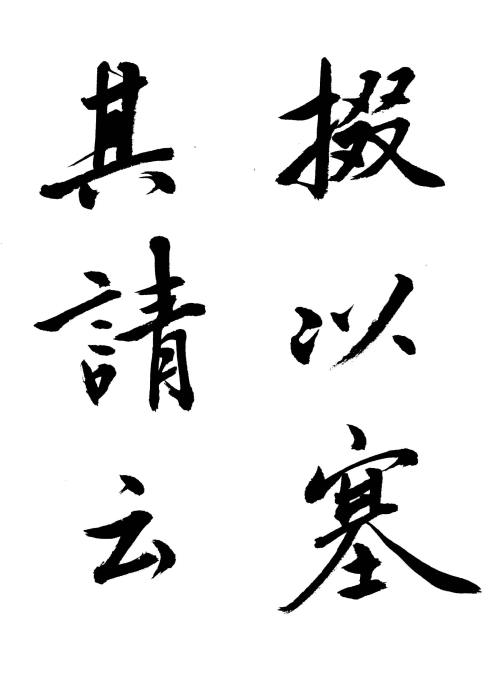 掇以塞
其請云